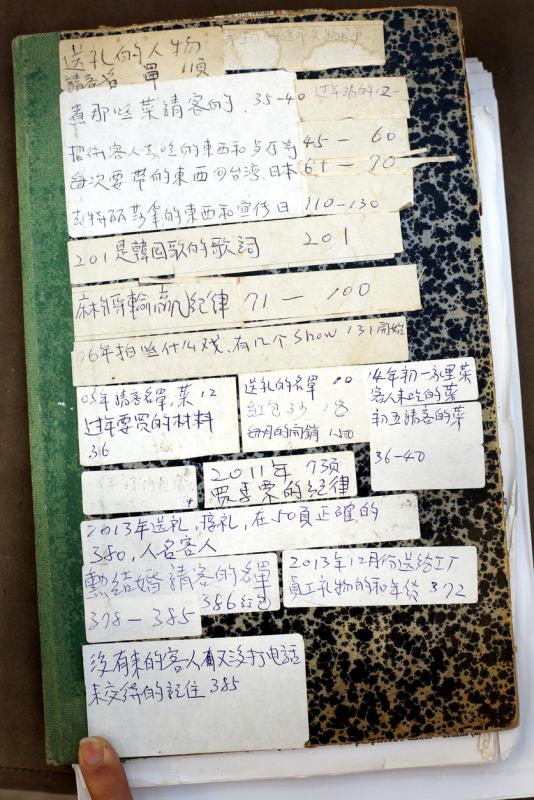 送礼的人物
請客名單 順
煮那些菜請客的. 35-40
招待客人去吃的東西和
45 — 60
每次要带的東西回台湾、日本
61 — 70
110-130
201是韓国歌的歌詞 201
麻将輸贏纪律 71 — 100
06年拍些什么戏,有几个show 131開始
05年請客名單,菜12
过年要買的材料
36
送礼的名單
红包
每月的開銷 150
14年初一家里菜
客人来吃的菜
初五請客的菜
36-40
2011年 7项
買季票的纪律
2013年送礼,接礼,在50頁正確的
380,人名客人
勲結婚請客的名單
378 — 385
386红包
2013年12月份送给工厂
員工礼物的和年货 372
没有来的客人有又没打电話
未交待的記住 385